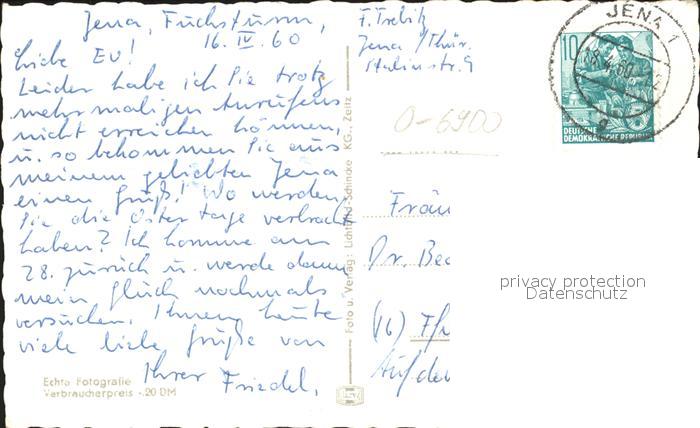 Jena, Fuchsturm,
16. IV. 60
Liebe Ev!
Leider habe ich Sie trotz
mehrmaligen Anrufens
nicht erreichen können,
u. so bekommen Sie aus
meinem geliebten Jena
einen Gruß! Wo werden
Sie die Ostertage verbracht
haben? Ich komme am
28. zurück u. werde dann
mein Glück nochmals
versuchen. Ihnen heute
viele liebe Grüße von
Ihrer Friedel.
Echte Fotografie
Verbraucherpreis -.20 DM
Foto u. Verlag: Lichtbild-Schincke KG., Zeitz
F. Trebitz
Jena /Thür.
Stalinstr. 9
O-6900
Fräu
Dr. Bec
(16) Ff
Auf der
JENA 1
18.4.60
10
DEUTSCHE
DEMOKRATISCHE REPUBLIK
privacy protection
Datenschutz